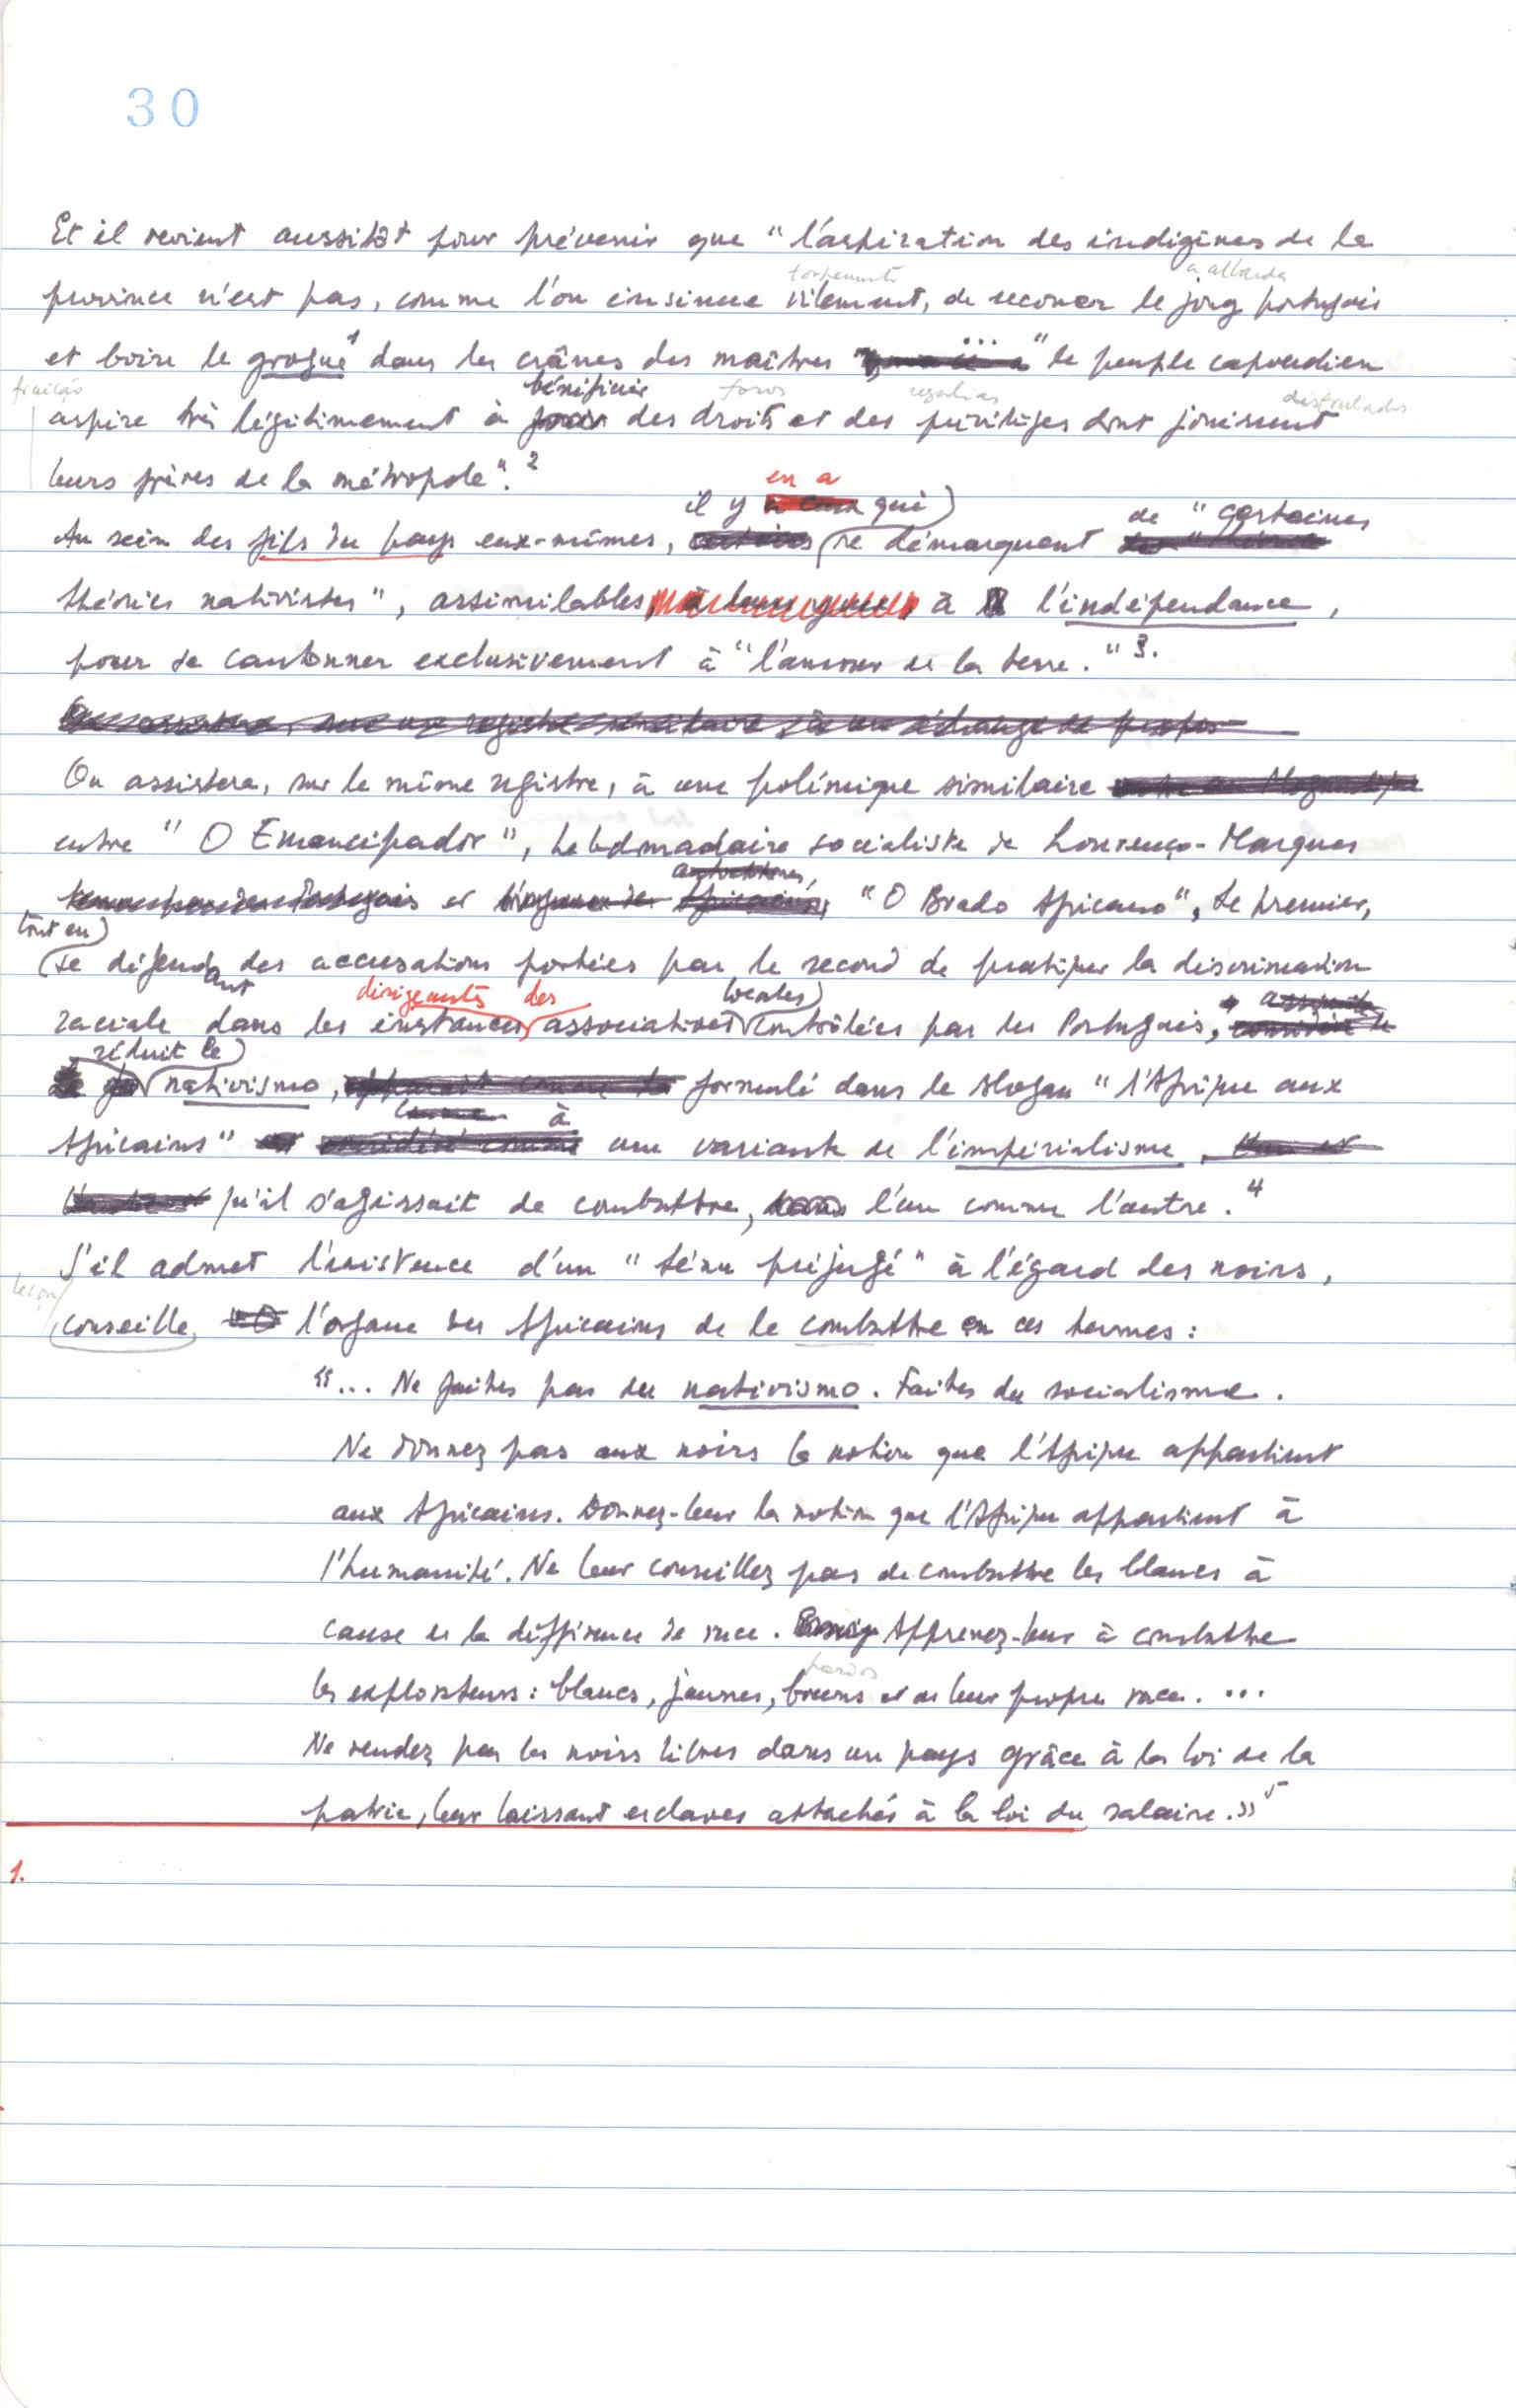 30
Et il revient aussitôt pour prévenir que "l'aspiration des indigènes de la
torpemente a albarda
province n'est pas, comme l'on insinue vilement, de secouer le joug portugais
et boire le grogue¹ dans les crânes des maîtres ... " le peuple capverdien
fruição bénéficier foros regalias desfrutados
aspire très légitimement à des droits et des privilèges dont jouissent
leurs frères de la métropole".²
il y en a qui de "certaines
Au sein des fils du pays eux-mêmes, se démarquent
théories nativistes", assimilables, à l'indépendance,
pour se cantonner exclusivement à "l'amour de la terre."³.
On assistera, sur le même registre, à une polémique similaire
entre "O Emancipador", hebdomadaire socialiste de Lourenço-Marques
et "O Brado Africano", Le premier,
tout en
se défendant des accusations portées par le second de pratiquer la discrimination
dirigeantes des locales
raciale dans les instances associatives contrôlées par les Portugais,
réduit le
nativismo, formulé dans le slogan "l'Afrique aux
à
Africains" une variante de l'impérialisme,
qu'il s'agissait de combattre, l'un comme l'autre.⁴
S'il admet l'existence d'un "ténu préjugé" à l'égard des noirs,
conseille, l'organe des Africains de le combattre en ces termes:
"... Ne faites pas du nativismo. Faites du socialisme.
Ne donnez pas aux noirs la notion que l'Afrique appartient
aux Africains. Donnez-leur la notion que l'Afrique appartient à
l'humanité. Ne leur conseillez pas de combattre les blancs à
cause de la différence de race. Apprenez-leur à combattre
pardos
les exploiteurs: blancs, jaunes, bruns et de leur propre race. ...
Ne rendez pas les noirs libres dans un pays grâce à la loi de la
patrie, leur laissant esclaves attachés à la loi du salaire.»⁵
1.